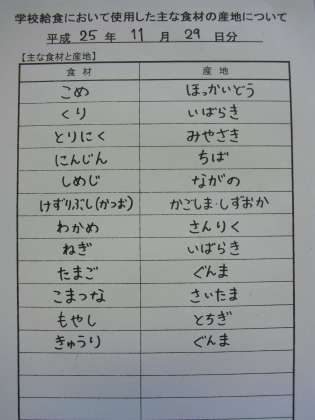 学校給食において使用した主な食材の産地について
平成 25 年 11 月 29 日分
【主な食材と産地】
食材 産地
こめ ほっかいどう
くり いばらき
とりにく みやざき
にんじん ちば
しめじ ながの
けずりぶし(かつお) かごしま・しずおか
わかめ さんりく
ねぎ いばらき
たまご ぐんま
こまつな さいたま
もやし とちぎ
きゅうり ぐんま